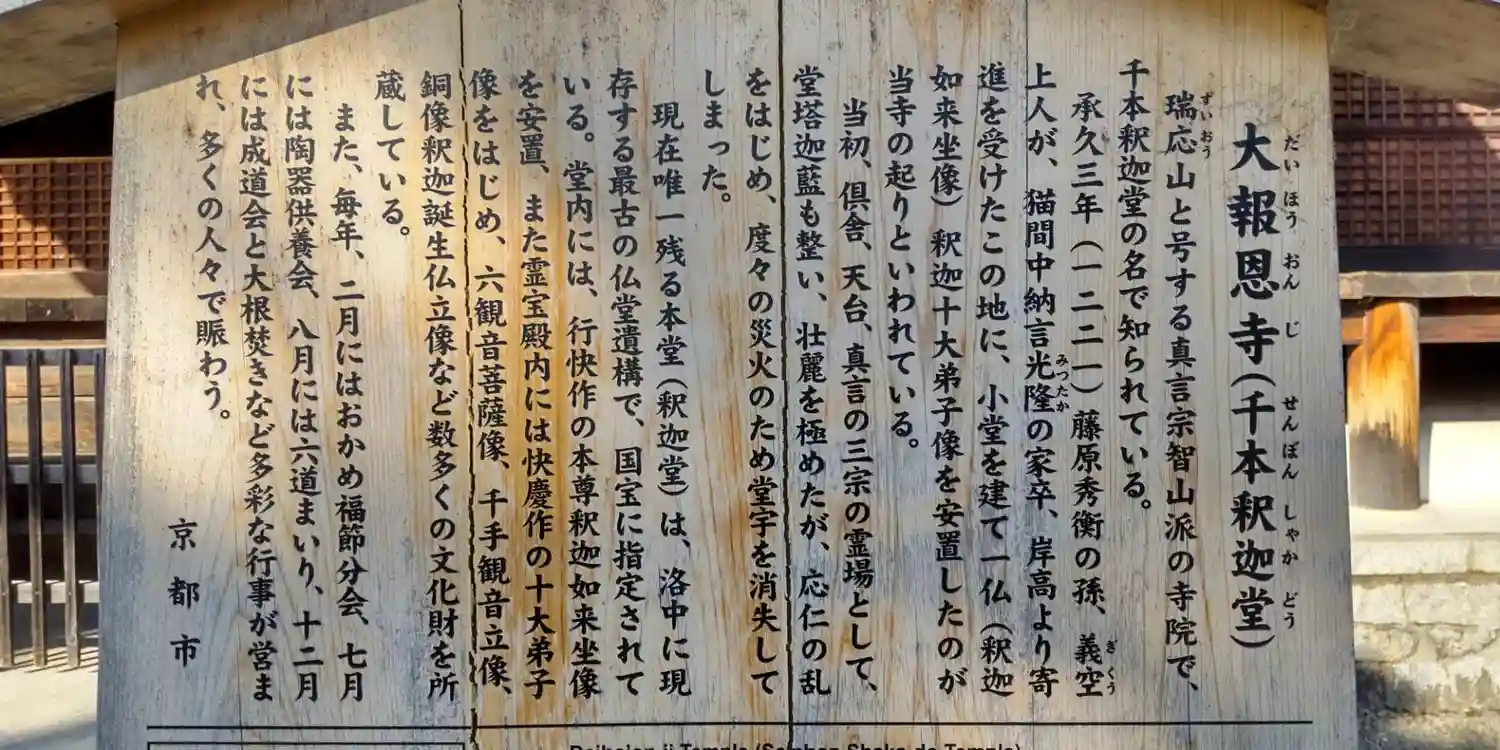 大報恩寺(千本釈迦堂)
だいほうおんじ せんぼんしゃかどう
瑞応山と号する真言宗智山派の寺院で、
ずいおう
千本釈迦堂の名で知られている。
承久三年(一二二一)藤原秀衡の孫、義空
ぎくう
上人が、猫間中納言光隆の家卒、岸高より寄
みつたか
進を受けたこの地に、小堂を建て一仏(釈迦
如来坐像)釈迦十大弟子像を安置したのが
当寺の起りといわれている。
当初、倶舎、天台、真言の三宗の霊場として、
堂塔迦藍も整い、壮麗を極めたが、応仁の乱
をはじめ、度々の災火のため堂宇を消失して
しまった。
現在唯一残る本堂(釈迦堂)は、洛中に現
存する最古の仏堂遺構で、国宝に指定されて
いる。堂内には、行快作の本尊釈迦如来坐像
を安置、また霊宝殿内には快慶作の十大弟子
像をはじめ、六観音菩薩像、千手観音立像、
銅像釈迦誕生仏立像など数多くの文化財を所
蔵している。
また、毎年、二月にはおかめ福節分会、七月
には陶器供養会、八月には六道まいり、十二月
には成道会と大根焚きなど多彩な行事が営ま
れ、多くの人々で賑わう。
京都市